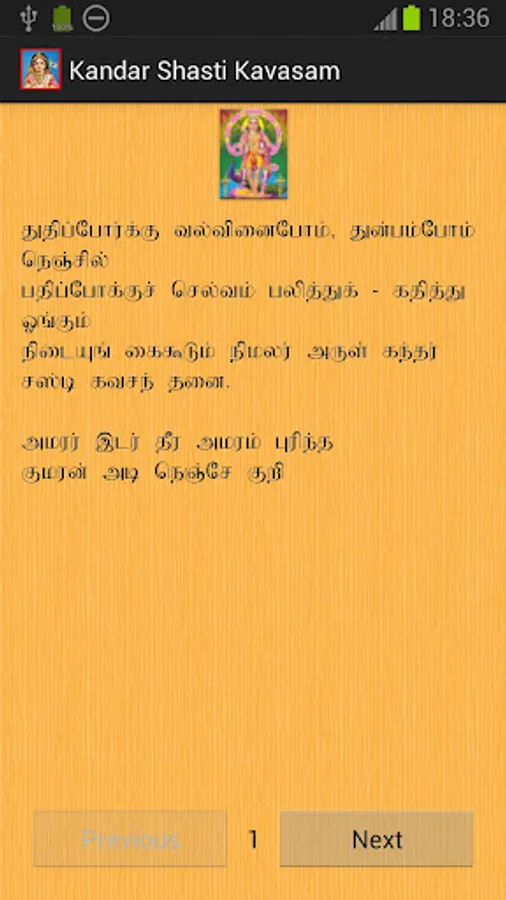 18:36
Kandar Shasti Kavasam
துதிப்போர்க்கு வல்வினைபோம், துன்பம்போம்
நெஞ்சில்
பதிப்போக்குச் செல்வம் பலித்துக் - கதித்து
ஓங்கும்
நிடையுங் கைகூடும் நிமலர் அருள் கந்தர்
சஸ்டி கவசந் தனை.
அமரர் இடர் தீர அமரம் புரிந்த
குமரன் அடி நெஞ்சே குறி
Previous 1 Next